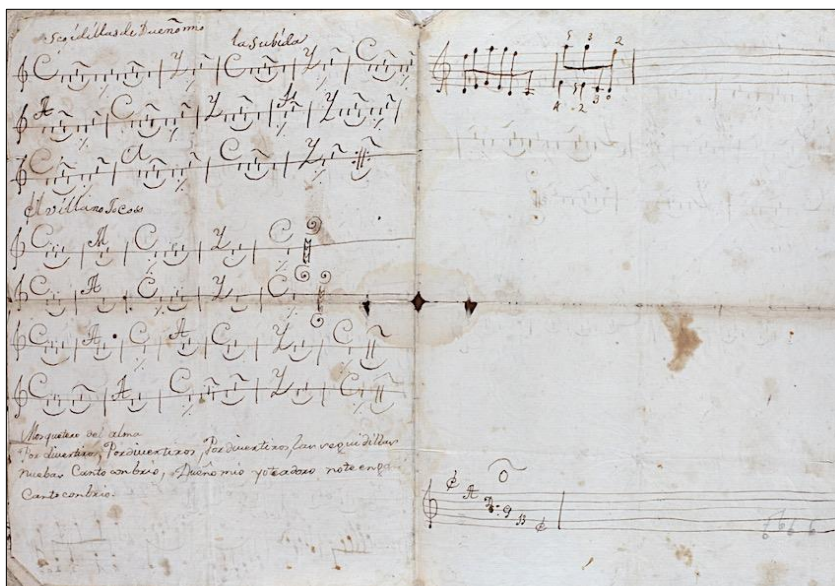 Segidillas de Dueño mio
la Subida
C C Y C Y C
A C Y A Y
C A C Y
El villano Tocoso
C A C Y C
C A C Y C
C A C A C Y C
C A C Y C
Mosquetero del alma
Por divertiros, Por divertiros, Por divertiros, las seguidillas
nuebas Canto con brio, Dueño mio yo te adoro no te enga
Canto con brio.
5 3 2
4 5 2 3 0